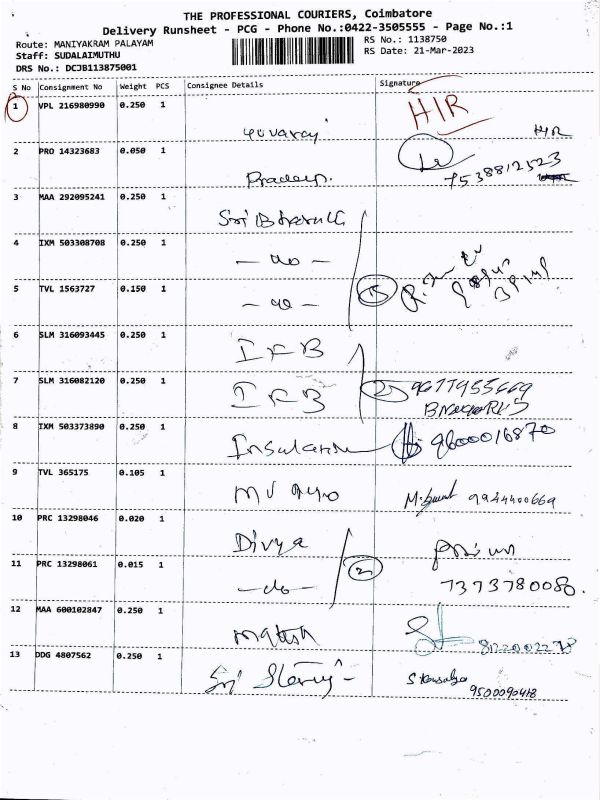 THE PROFESSIONAL COURIERS, Coimbatore
Delivery Runsheet - PCG - Phone No.:0422-3505555 - Page No.:1
Route: MANIYAKRAM PALAYAM
RS No.: 1138750
Staff: SUDALAIMUTHU
RS Date: 21-Mar-2023
DRS No.: DCJB113875001
S No Consignment No Weight PCS Consignee Details Signature
1 VPL 216980990 0.250 1 HIR
Yuvaraj HIR
2 PRO 14323683 0.050 1
Pradeep. 7538812523
3 MAA 292095241 0.250 1
Sri Bharath
4 IXM 503308708 0.250 1
- do -
5 TVL 1563727 0.150 1
- do -
6 SLM 316093445 0.250 1
IFB
7 SLM 316082120 0.250 1 9677955669
IFB
8 IXM 503373890 0.250 1 9600016870
9 TVL 365175 0.105 1
9944400669
10 PRC 13298046 0.020 1
Divya
11 PRC 13298061 0.015 1 2
- do - 7373780080.
12 MAA 600102847 0.250 1
13 DDG 4807562 0.250 1
Sri
9500090418